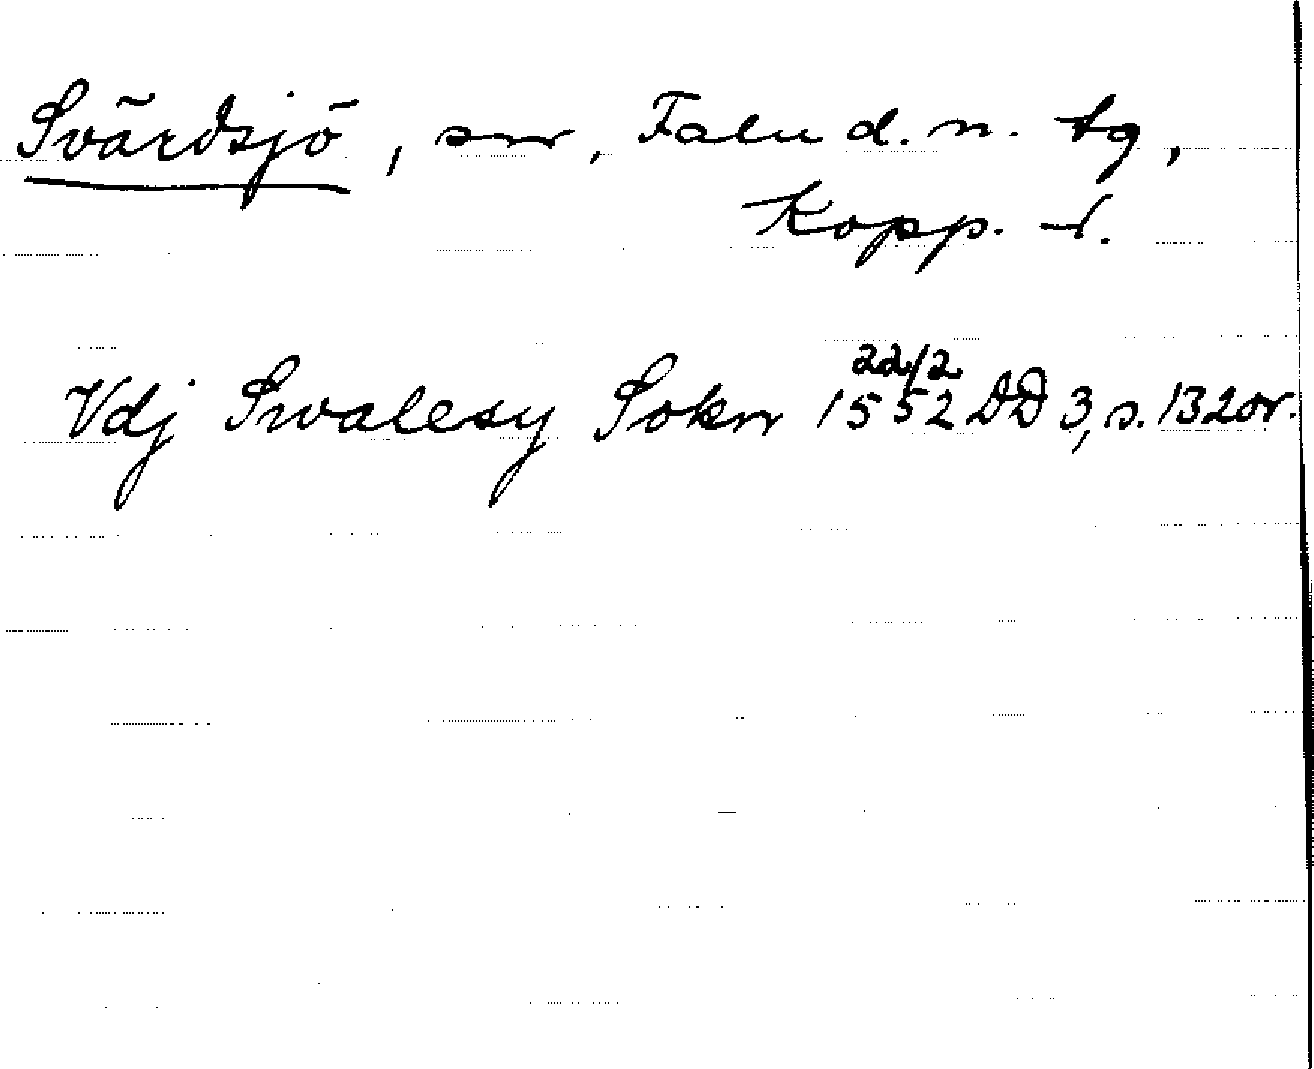 Svärdsjö, sn, Falu d. n. tg,
Kopp. l.
Vdj Swalesy Sokn 22/2 1552 DD 3, s. 132 or.